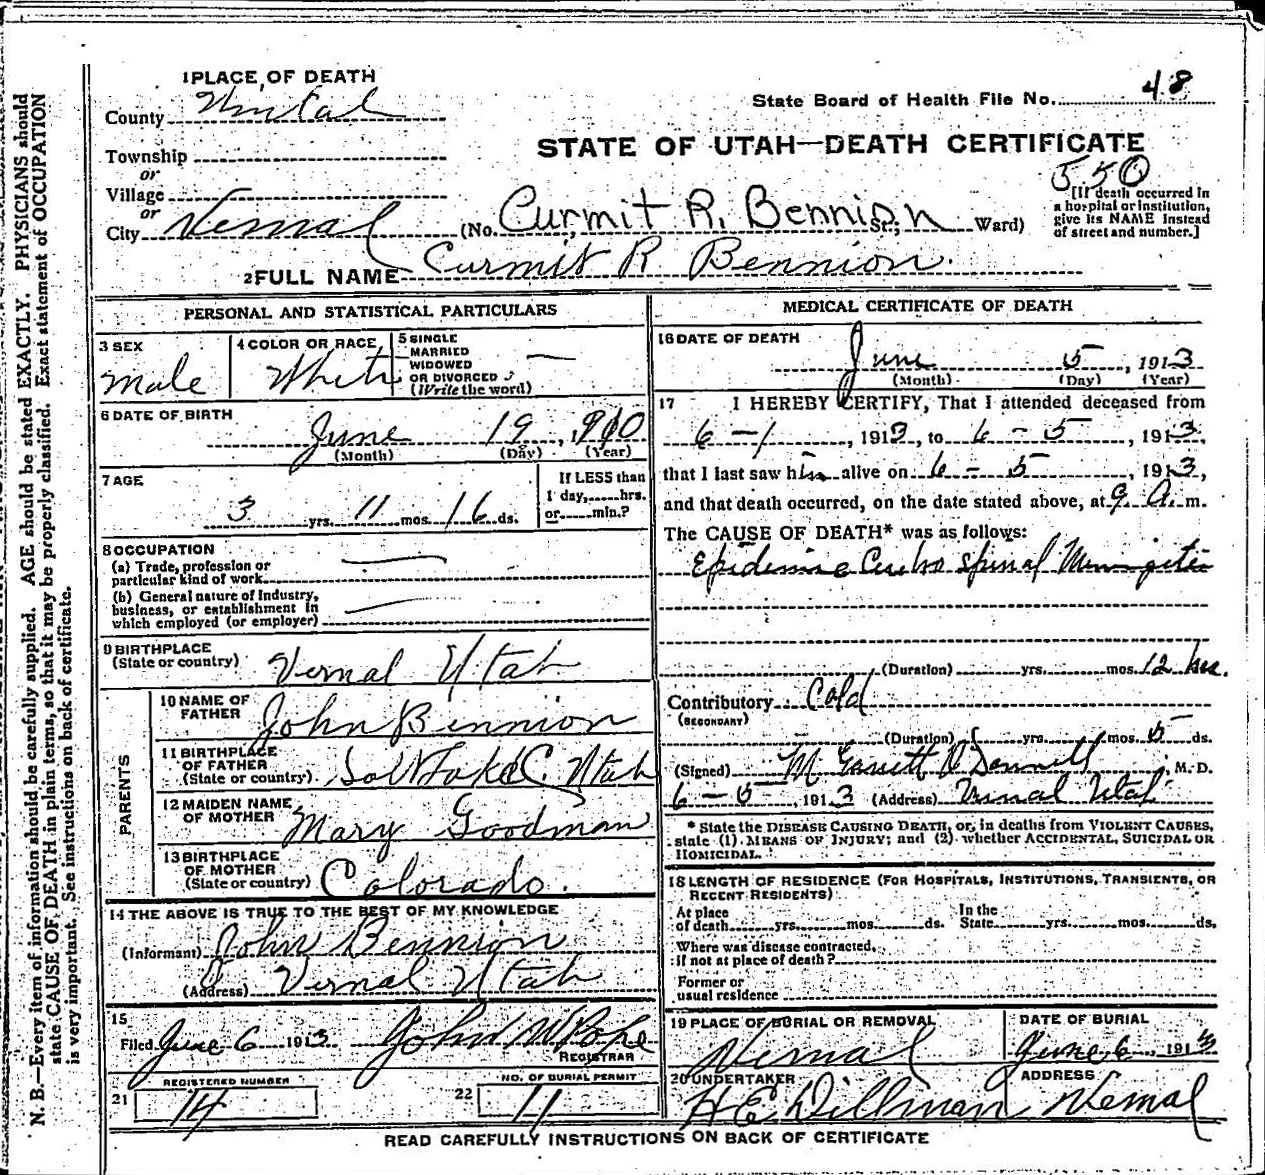 1 PLACE OF DEATH
County Uintah
State Board of Health File No. 48
STATE OF UTAH—DEATH CERTIFICATE
Township
or
Village
or
City Vernal (No. Curmit R. Bennion St.; Ward)
550
[If death occurred in
a hospital or institution,
give its NAME instead
of street and number.]
2 FULL NAME Curmit R Bennion.
PERSONAL AND STATISTICAL PARTICULARS
3 SEX
Male
4 COLOR OR RACE
White
5 SINGLE
MARRIED
WIDOWED
OR DIVORCED
(Write the word)
—
6 DATE OF BIRTH
June 19, 1910
(Month) (Day) (Year)
7 AGE
3 yrs. 11 mos. 16 ds.
If LESS than
1 day,......hrs.
or......min.?
8 OCCUPATION
(a) Trade, profession or
particular kind of work
(b) General nature of Industry,
business, or establishment in
which employed (or employer)
9 BIRTHPLACE
(State or country) Vernal Utah
PARENTS
10 NAME OF
FATHER John Bennion
11 BIRTHPLACE
OF FATHER
(State or country) Salt Lake C. Utah
12 MAIDEN NAME
OF MOTHER Mary Goodman
13 BIRTHPLACE
OF MOTHER
(State or country) Colorado.
14 THE ABOVE IS TRUE TO THE BEST OF MY KNOWLEDGE
(Informant) John Bennion
(Address) Vernal Utah
15
Filed June 6 1913 John N Pope
REGISTRAR
REGISTERED NUMBER
21 14
NO. OF BURIAL PERMIT
22 11
MEDICAL CERTIFICATE OF DEATH
16 DATE OF DEATH
June 5, 1913
(Month) (Day) (Year)
17 I HEREBY CERTIFY, That I attended deceased from
6 - 1, 1913, to 6 - 5, 1913,
that I last saw him alive on 6 - 5, 1913,
and that death occurred, on the date stated above, at 9 A. m.
The CAUSE OF DEATH* was as follows:
Epidemic Cerebro Spinal Meningitis
(Duration) yrs. mos. 12 hrs.
Contributory Cold
(SECONDARY)
(Duration) yrs. mos. 5 ds.
(Signed) M Garrett O'Donnell, M. D.
6 - 5, 1913 (Address) Vernal Utah
* State the DISEASE CAUSING DEATH, or, in deaths from VIOLENT CAUSES,
state (1) MEANS OF INJURY; and (2) whether ACCIDENTAL, SUICIDAL OR
HOMICIDAL.
18 LENGTH OF RESIDENCE (FOR HOSPITALS, INSTITUTIONS, TRANSIENTS, OR
RECENT RESIDENTS)
At place
of death yrs. mos. ds.
In the
State yrs. mos. ds.
Where was disease contracted,
if not at place of death?
Former or
usual residence
19 PLACE OF BURIAL OR REMOVAL
Vernal
DATE OF BURIAL
June 6, 1913
20 UNDERTAKER
H E Dillman
ADDRESS
Vernal
READ CAREFULLY INSTRUCTIONS ON BACK OF CERTIFICATE
N. B.—Every item of information should be carefully supplied. AGE should be stated EXACTLY. PHYSICIANS should
state CAUSE OF DEATH in plain terms, so that it may be properly classified. Exact statement of OCCUPATION
is very important. See instructions on back of certificate.